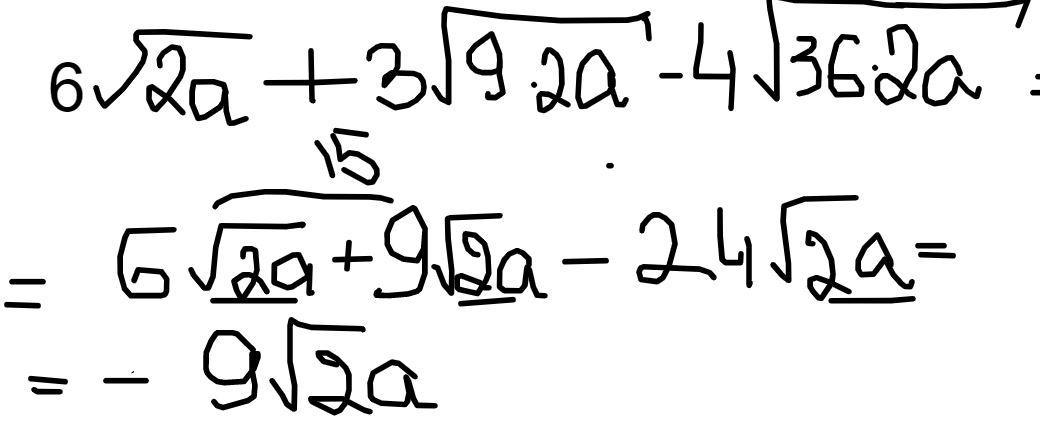 6√2a + 3√9·2a - 4√36·2a =
15
= 6√2a + 9√2a - 24√2a =
= - 9√2a